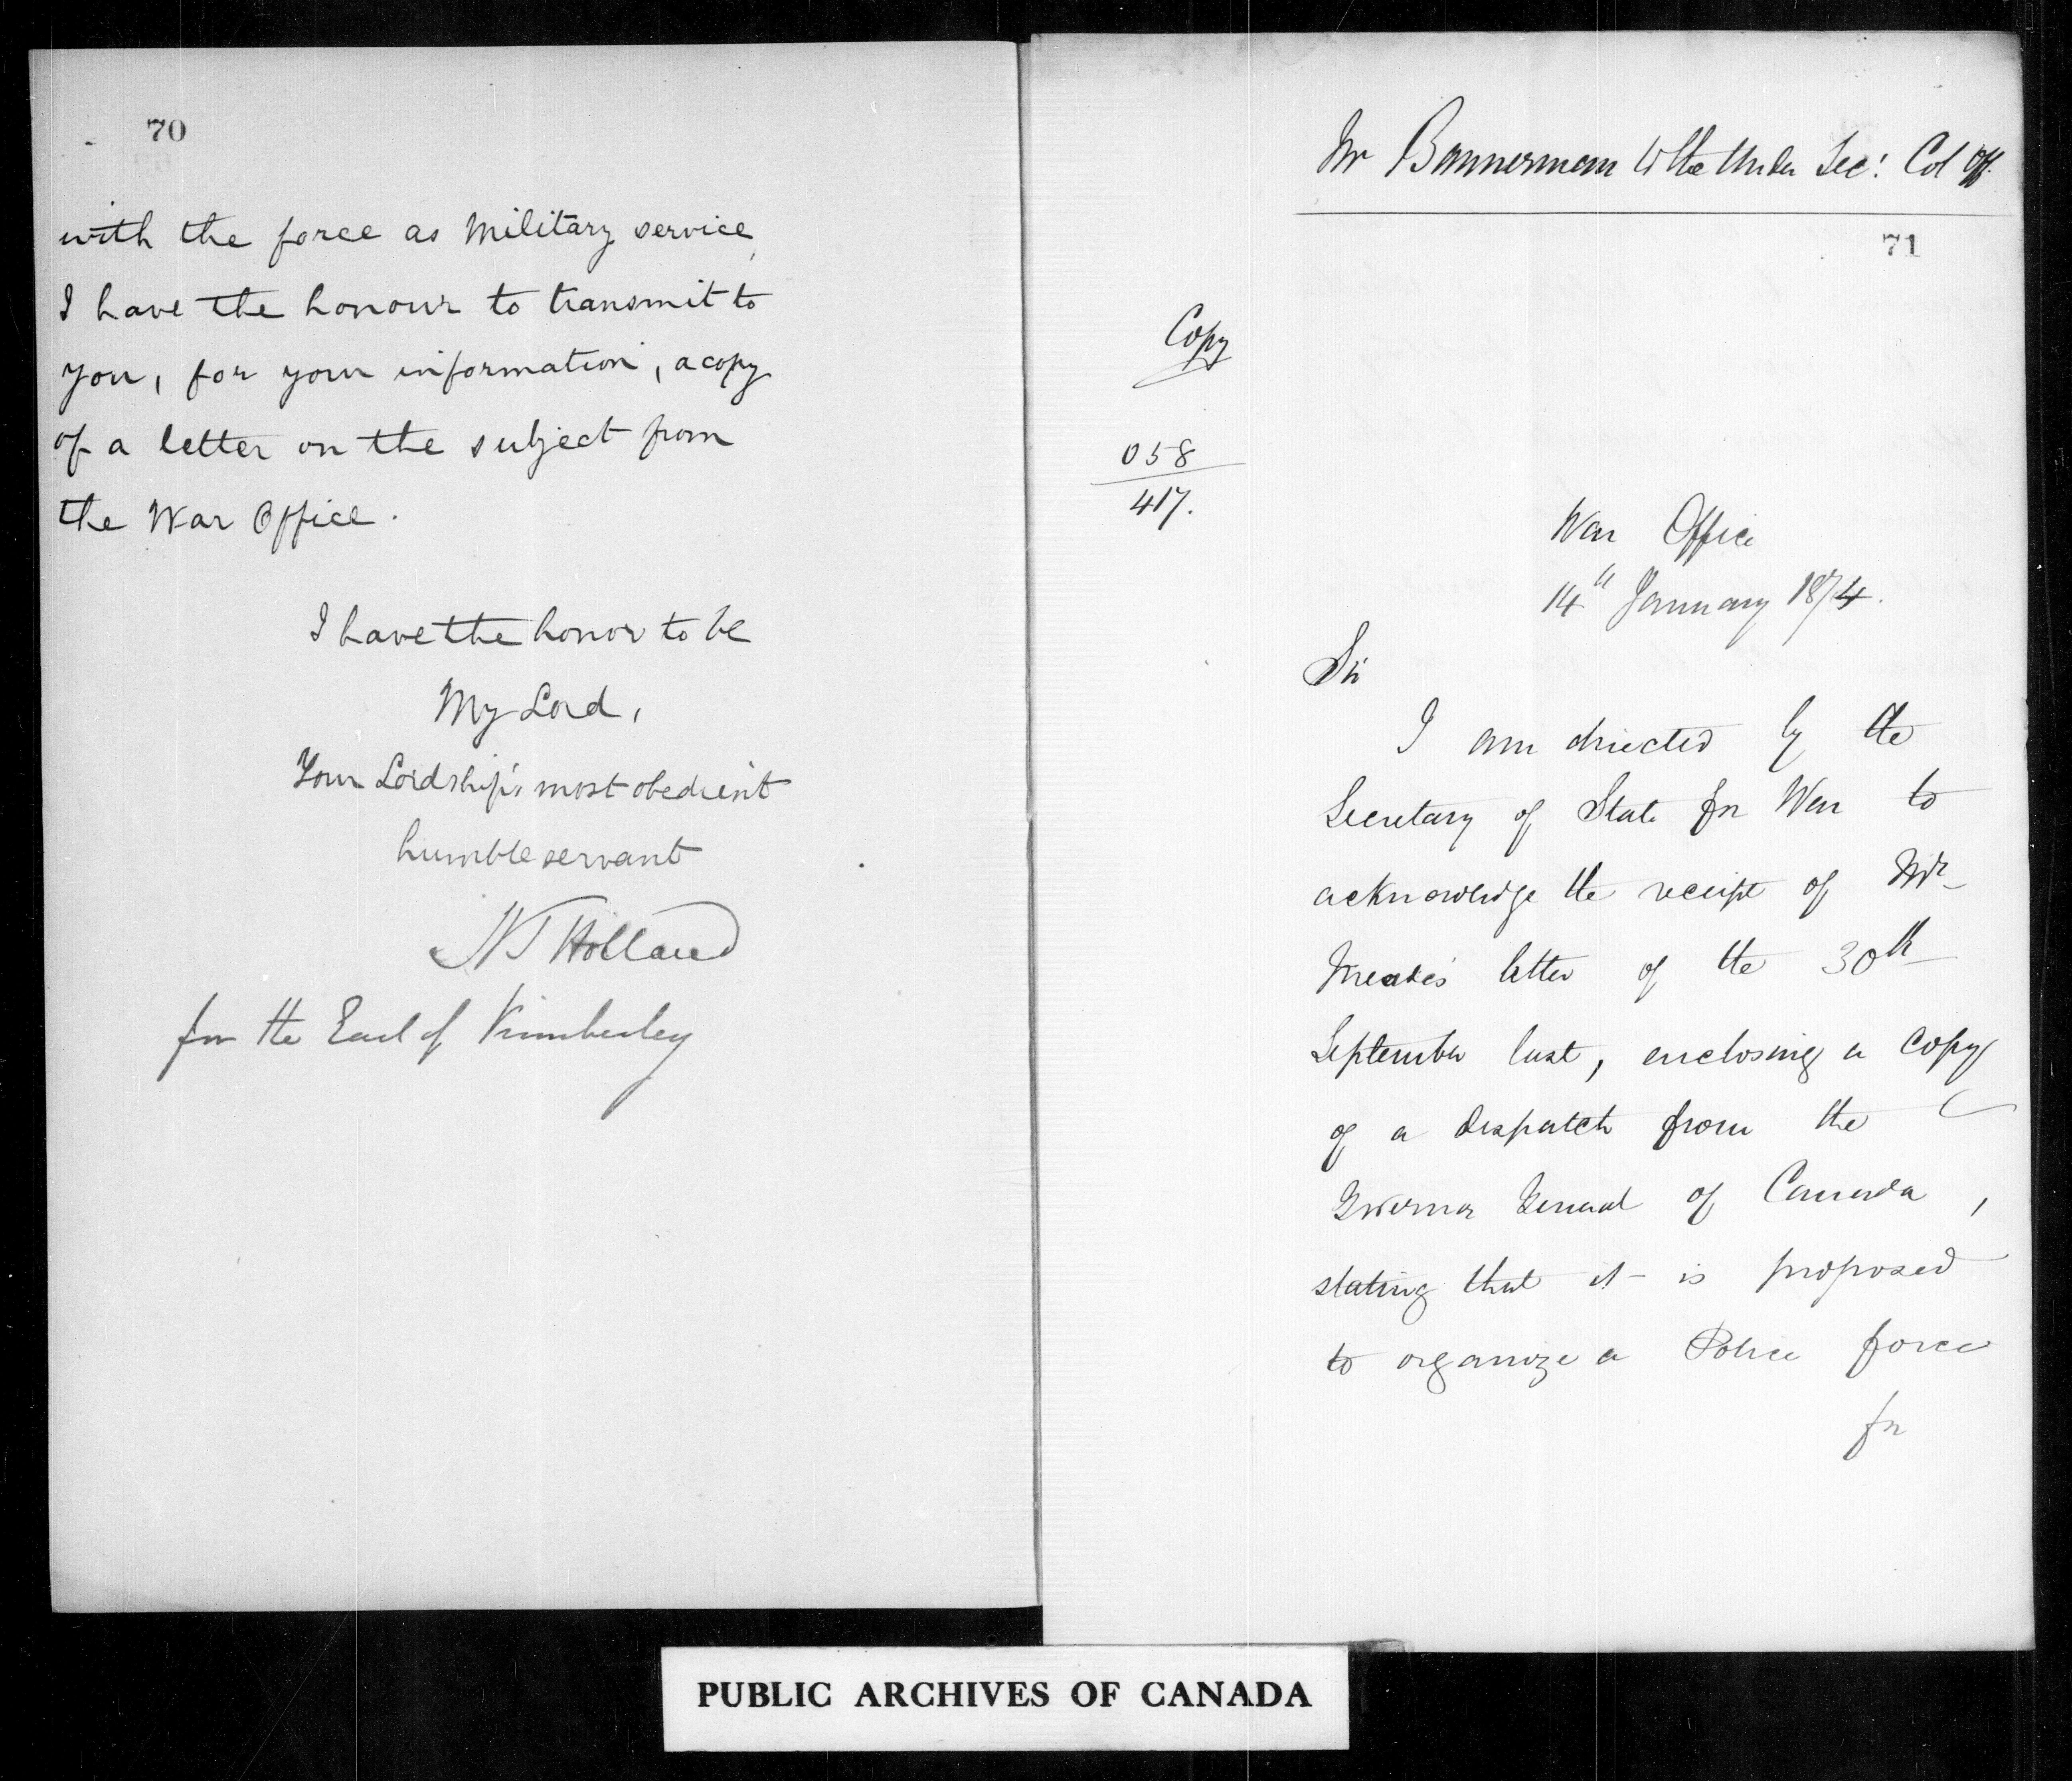 70
with the force as Military service,
I have the honour to transmit to
you, for your information, a copy
of a letter on the subject from
the War Office.
I have the honor to be
My Lord,
Your Lordship's most obedient
humble servant
Holland
for the Earl of Kimberley
Mr Bannerman to the Under Sec: Col Off.
71
Copy
058
417.
War Office
14th January 1874.
Sir
I am directed by the
Secretary of State for War to
acknowledge the receipt of Mr
Meade's letter of the 30th
September last, enclosing a copy
of a Dispatch from the
Governor General of Canada,
stating that it is proposed
to organize a Police force
for
PUBLIC ARCHIVES OF CANADA